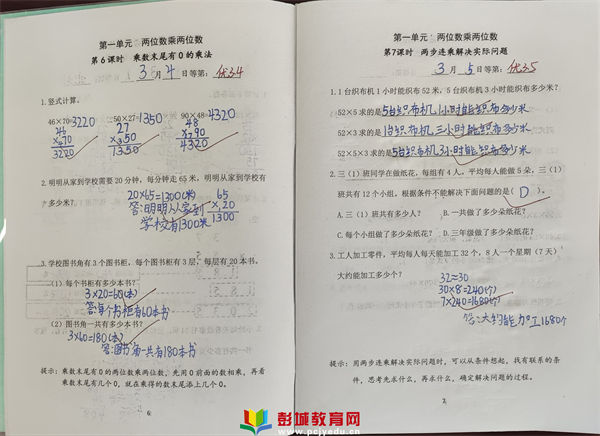 第一单元 两位数乘两位数
第6课时 乘数末尾有0的乘法
3月4日等第：优3.4
1.竖式计算。
46×70=3220 50×27=1350 90×48=4320
46 27 48
×70 ×50 ×90
3220 1350 4320
2.明明从家到学校需要20分钟，每分钟走65米，明明从家到学校有
多少米？
20×65=1300(米) 65
答:明明从家到 ×20
学校有1300米 1300
3.学校图书角有3个图书柜，每个图书柜有3层，每层有20本书。
（1）每个书柜有多少本书？
3×20=60(本)
答:每个书柜有60本书
（2）图书角一共有多少本书？
3×60=180(本)
答:图书角一共有180本书
提示：乘数末尾有0的两位数乘两位数，先用0前面的数相乘，再看
乘数末尾有几个0，就在乘得的数末尾添上几个0。
6
第一单元 两位数乘两位数
第7课时 两步连乘解决实际问题
3月5日等第：优3.5
1.1台织布机1小时能织布52米，5台织布机3小时能织布多少米？
52×5求的是5台织布机1小时能织布多少米
52×3求的是1台织布机三小时能织布多少米
52×5×3求的是5台织布机3小时能织布多少米。
2.三（1）班同学在做纸花，每组有4人，平均每人能做5朵，三（1）
班共有12个小组，根据条件不能解决下面问题的是（D）。
A.三（1）班共有多少人？ B.一共做了多少朵纸花？
C.每个小组做了多少朵纸花？ D.三年级做了多少朵纸花？
3.工人加工零件，平均每人每天能加工32个，8人一个星期（7天）
大约能加工多少个？
32≈30
30×8=240(个)
7×240=1680(个)
答:大约能加工1680个
提示：用两步连乘解决实际问题时，可以从条件想起，找有联系的条
件，思考先求什么，再求什么，确定解决问题的过程。
7
彭城教育网
www.pcjyedu.cn